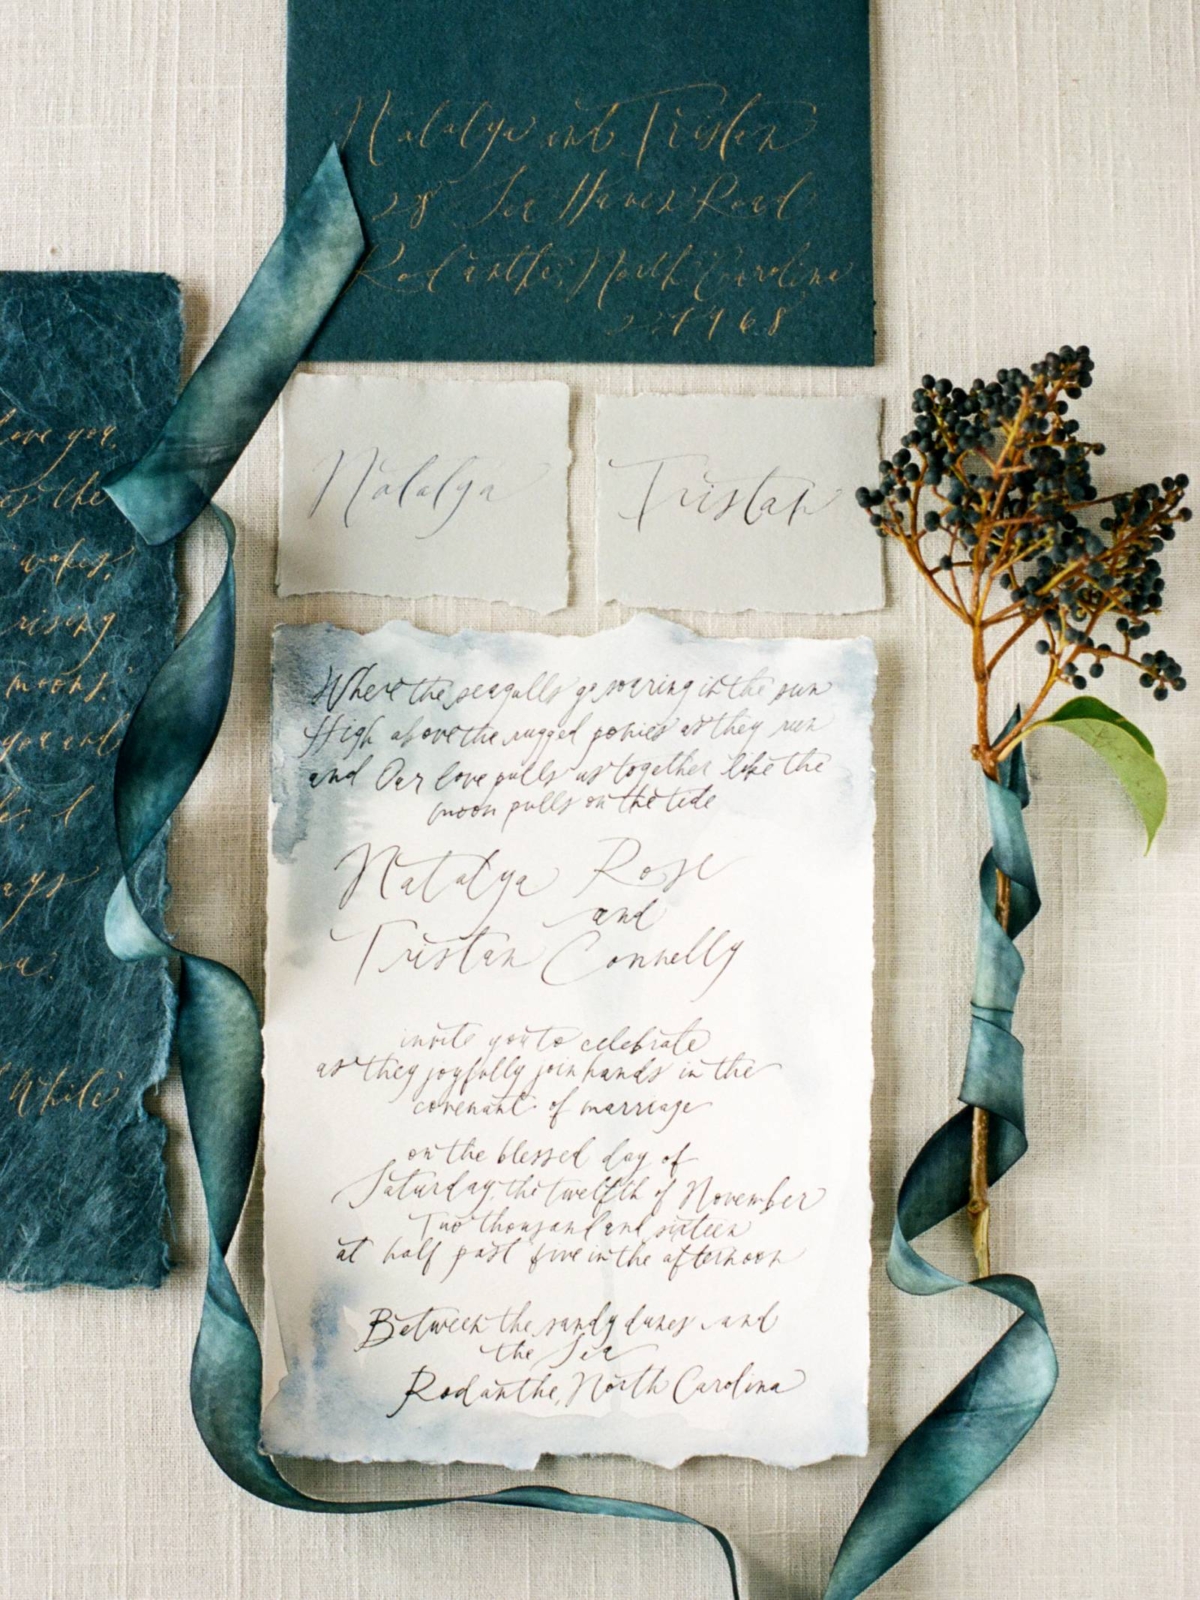 Natalya and Tristan
28 Sea Haven Road
Rodanthe, North Carolina
27968
Natalya
Tristan
Where the seagulls go soaring in the sun
High above the rugged ponies as they run
and Our love pulls us together like the
moon pulls on the tide
Natalya Rose
and
Tristan Connelly
invite you to celebrate
as they joyfully join hands in the
covenant of marriage
on the blessed day of
Saturday, the twelfth of November
Two thousand and sixteen
at half past five in the afternoon
Between the sandy dunes and
the Sea
Rodanthe, North Carolina
love you,
the
wakes,
rising
moons.
you and
I
you.
White